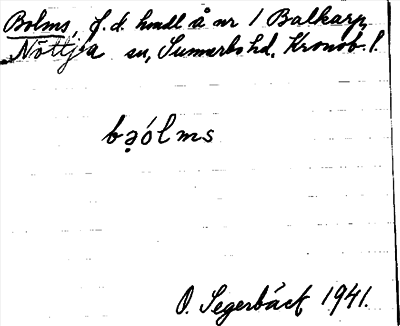 Bolms, f.d. hmdl å nr 1 Balkarp,
Nöttja sn, Sunnerbo hd, Kronob. l.
bəólms
O. Segerbäck 1941.